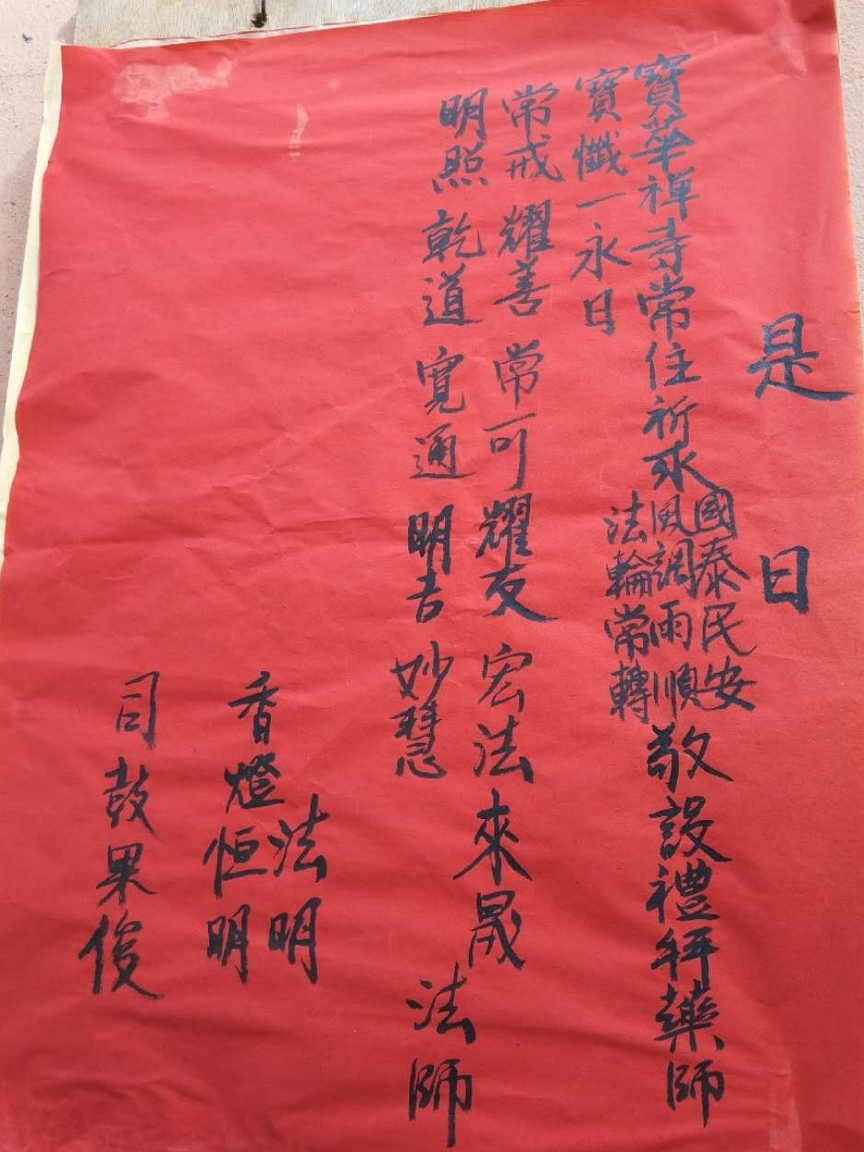 是日
寶華禪寺常住祈求
國泰民安
風調雨順
法輪常轉
敬設禮拜藥師
寶懺一永日
常戒 耀善 常可 耀友 宏法 來晟
明照 乾道 寬通 明吉 妙慧
法師
香燈
法明
恒明
司鼓果俊